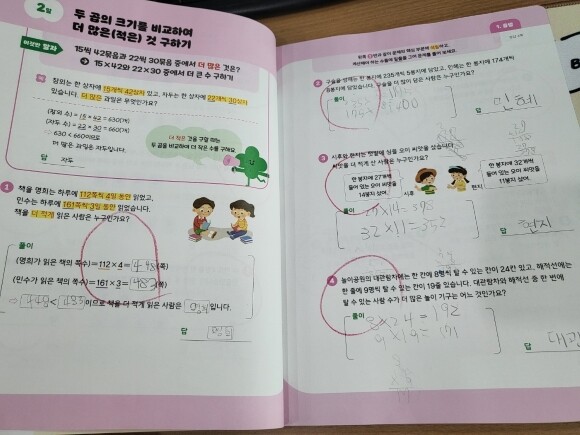 2일
두 곱의 크기를 비교하여
더 많은(적은) 것 구하기
이것만 알자
15씩 42묶음과 22씩 30묶음 중에서 더 많은 것은?
→ 15×42와 22×30 중에서 더 큰 수 구하기
예 참외는 한 상자에 15개씩 42상자 있고, 자두는 한 상자에 22개씩 30상자
있습니다. 더 많은 과일은 무엇인가요?
(참외 수) = 15 × 42 = 630(개)
(자두 수) = 22 × 30 = 660(개)
⇨ 630 < 660이므로
더 많은 과일은 자두입니다.
답 자두
더 적은 것을 구할 때는
두 곱을 비교하여 더 작은 수를 구해요.
1 책을 명희는 하루에 112쪽씩 4일 동안 읽었고,
민수는 하루에 161쪽씩 3일 동안 읽었습니다.
책을 더 적게 읽은 사람은 누구인가요?
풀이
(명희가 읽은 책의 쪽수)=112×4=448(쪽)
(민수가 읽은 책의 쪽수)=161×3=483(쪽)
⇨ 448<483이므로 책을 더 적게 읽은 사람은 명희입니다.
답 명희
1. 곱셈
왼쪽 ❶번과 같이 문제의 핵심 부분에 색칠하고,
비교해야 하는 수들에 밑줄을 그어 문제를 풀어 보세요.
2
풀이
답 민혜
3 시후와 현지는 텃밭에 심을 오이 씨앗을 샀습니다.
씨앗을 더 적게 산 사람은 누구인가요?
한 봉지에 27개씩
들어 있는 오이 씨앗을
14봉지 샀어.
시후
현지
한 봉지에 32개씩
들어 있는 오이 씨앗을
11봉지 샀어.
풀이
32×11=352
답 현지
4 놀이공원의 대관람차에는 한 칸에 8명씩 탈 수 있는 칸이 24칸 있고, 해적선에는
한 줄에 9명씩 탈 수 있는 칸이 19줄 있습니다. 대관람차와 해적선 중 한 번에
탈 수 있는 사람 수가 더 많은 놀이 기구는 어느 것인가요?
풀이
8×24=192
9×19=171
답 대관